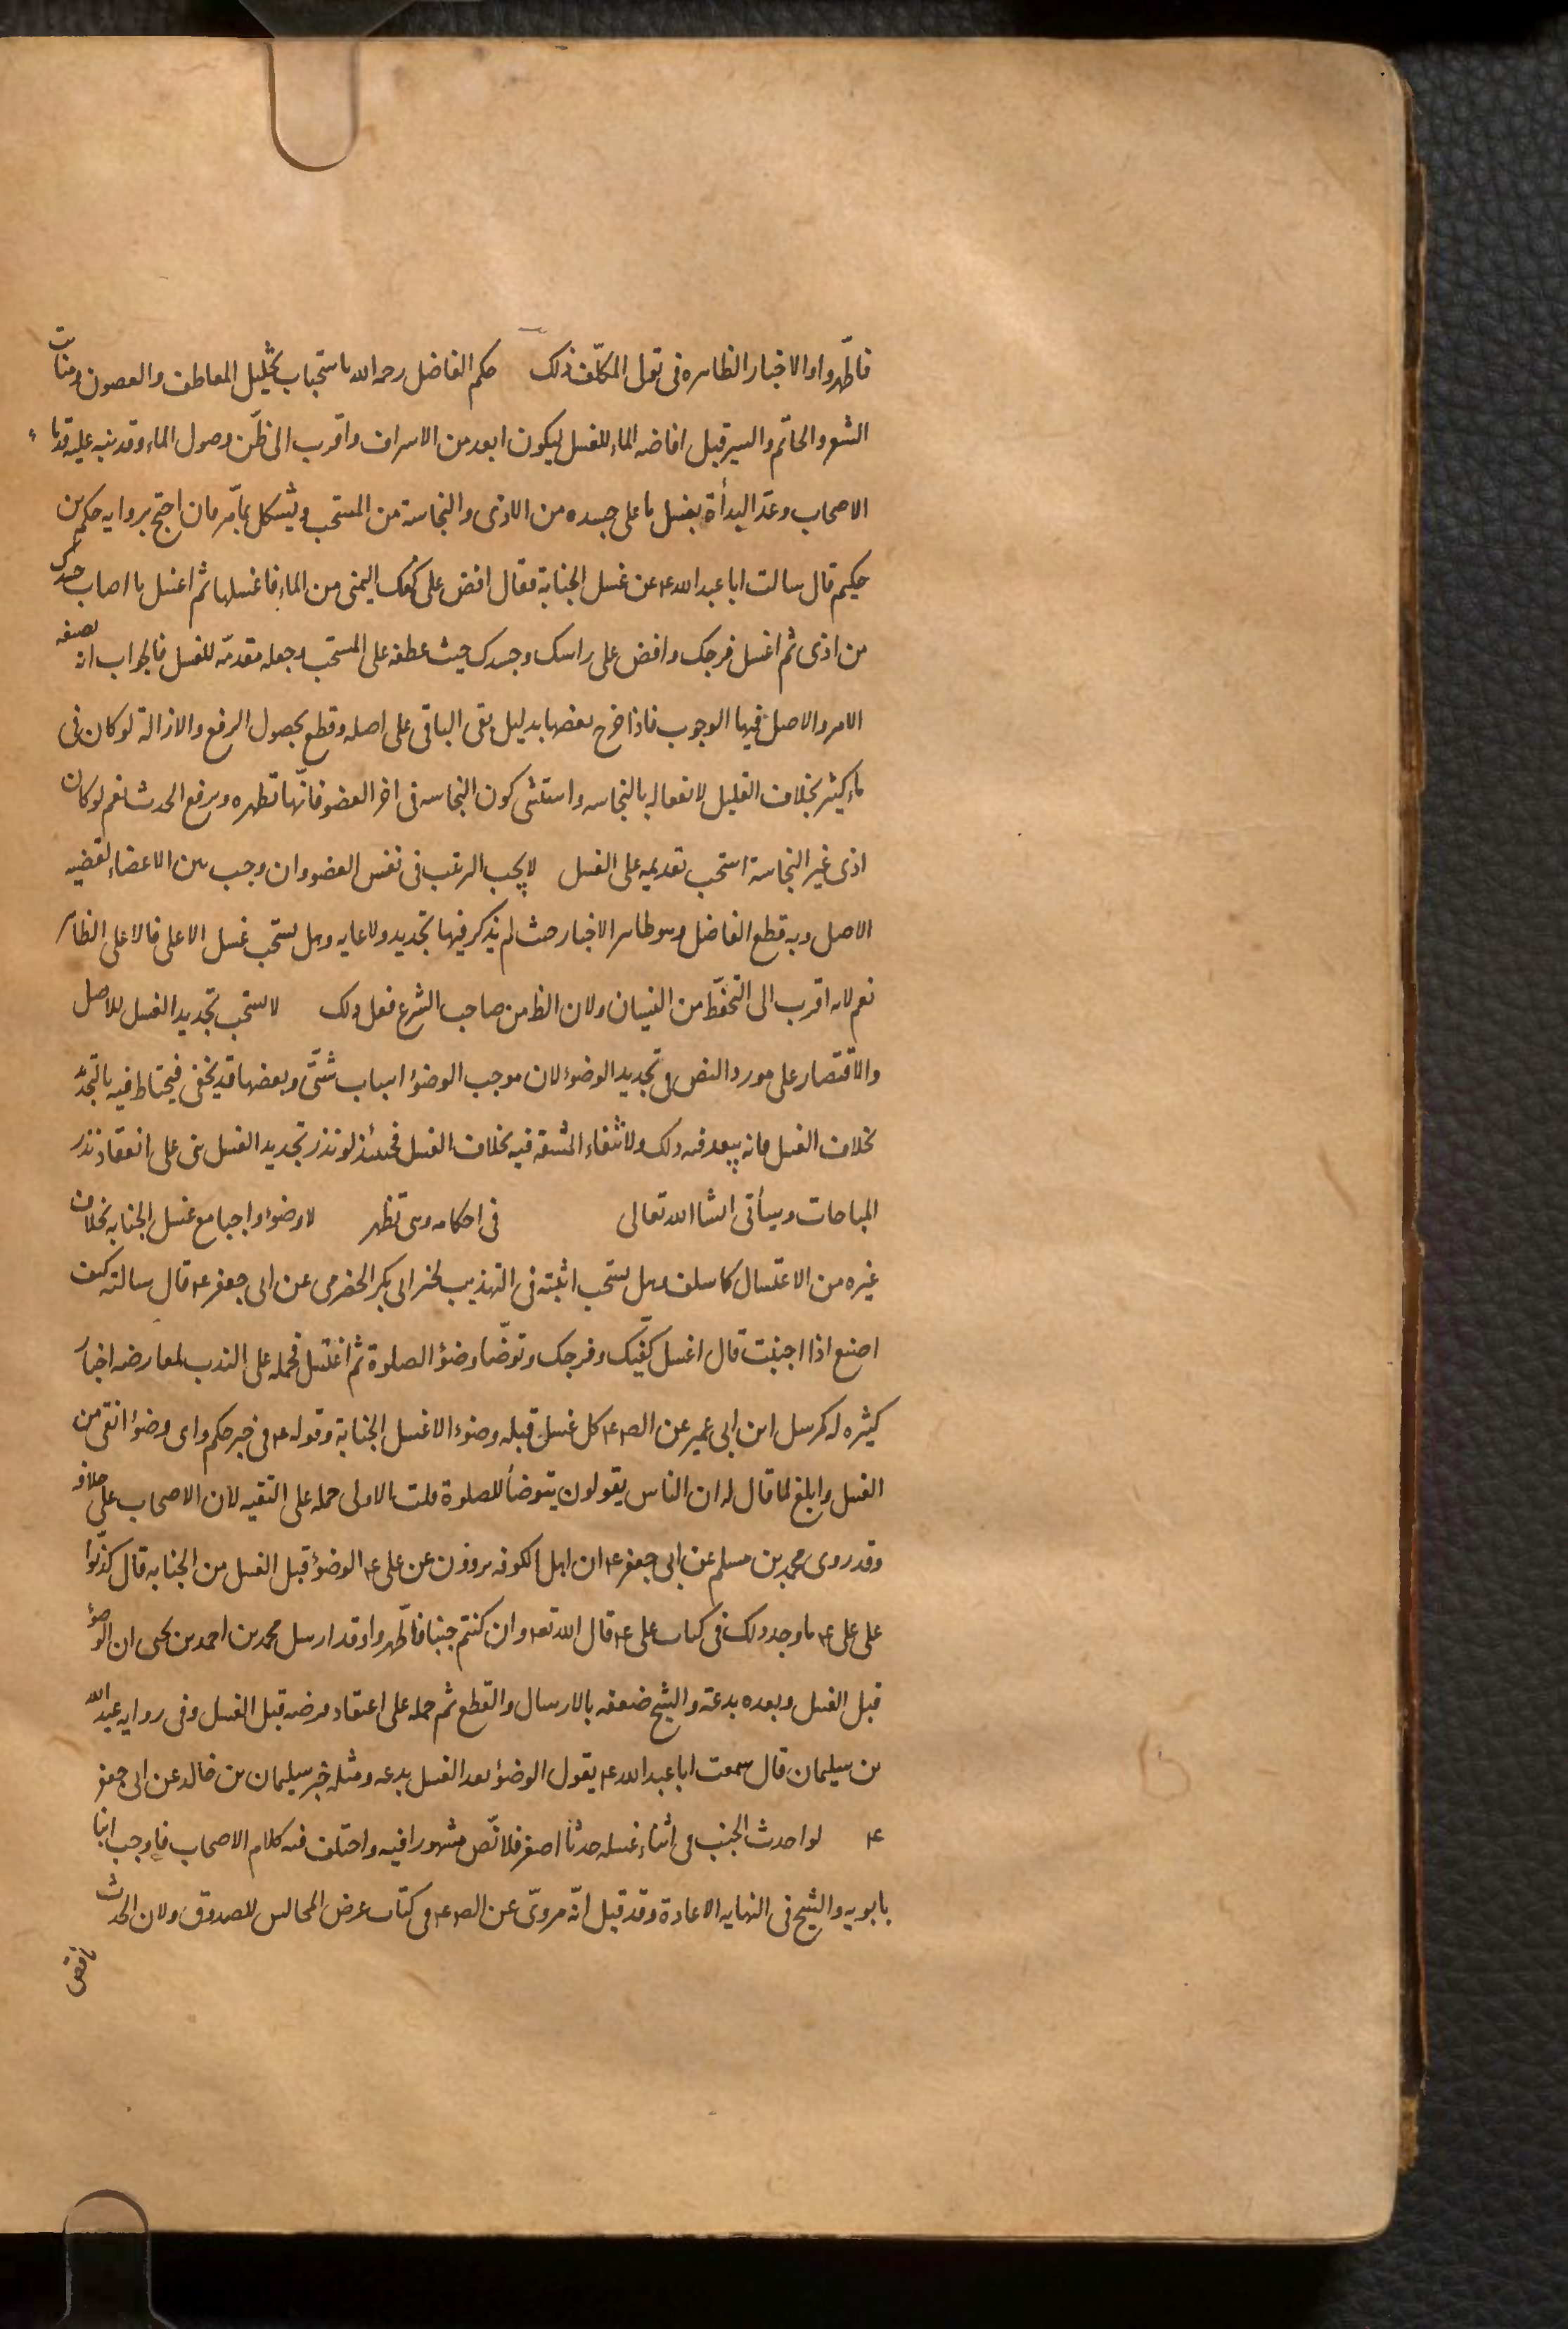 فاطّهروا والاخبار الظاهره فى تولى المكلّف ذلك حكم الفاضل رحمه الله باستحباب تخليل المعاطف والغضون ومنابت
الشعر والخاتم والسير قبل افاضه الماء للغسل ليكون ابعد من الاسراف واقرب الى ظنّ وصول الماء وقد نبه عليه قدماء
الاصحاب وعدّ البدأة بغسل ما على جسده من الاذى والنجاسة من المستحب ويشكل بما مّر فان احتج بروايه حكم بن
حكيم قال سالت ابا عبد الله ع عن غسل الجنابة فقال افض على كفك اليمنى من الماء فاغسلها ثم اغسل ما اصاب جسدك
من اذى ثم اغسل فرجك وافض على راسك وجسدك حيث عطفه على المستحب وجعله مقدمّه للغسل فالجواب انه بصيغه
الامر والاصل فيها الوجوب فاذا خرج بعضها بدليل بقى الباقى على اصله وقطع بحصول الرفع والازالة لو كان فى
ماء كثير بخلاف القليل لانفعاله بالنجاسه واستثنى كون النجاسه فى اخر العضو فانّها تطهره ويرفع الحدث نعم لو كان
اذى غير النجاسة استحب تقديمه على الغسل لا يجب الترتيب فى نفس العضو وان وجب بين الاعضاء لقضيه
الاصل وبه قطع الفاضل وهو ظاهر الاخبار حيث لم يذكر فيها تحديد ولا غايه وهل يستحب غسل الاعلى فالاعلى الظاهر
نعم لانه اقرب الى التحفّظ من النسيان ولان الظ من صاحب الشرع فعل ذلك لا يستحب تجديد الغسل للاصل
والاقتصار على مورد النص فى تجديد الوضوء لان موجب الوضوء اسباب شتّى وبعضها قد يخفى فيحتاط فيه بالتجدّد
بخلاف الغسل فانه يبعد فيه ذلك ولانتفاء المشقه فيه بخلاف الغسل فحينئذ لو نذر تجديد الغسل بنى على انعقاد نذر
المباحات وسيأتى انشا الله تعالى فى احكامه وهى تظهر لا وضوء واجبا مع غسل الجنابه بخلاف
غيره من الاغتسال كما سلف وهل يستحب اثبته فى التهذيب لخبر ابى بكر الحضرمى عن ابى جعفر ع قال سالته كيف
اصنع اذا اجنبت قال اغسل كفّيك وفرجك وتوضّا وضؤ الصلوة ثم اغتسل فحمله على الندب لمعارضه اخبار
كثيره له كمرسل ابن ابى عمير عن الص ع كل غسل قبله وضوء الا غسل الجنابة وقوله ع فى خبر حكم واى وضوء انقى من
الغسل وابلغ لما قال له ان الناس يقولون يتوضأ للصلوة قلت الاولى حمله على التقيه لان الاصحاب على خلافه
وقد روى محمد بن مسلم عن ابى جعفر ع ان اهل الكوفه يروون عن على ع الوضؤ قبل الغسل من الجنابه قال كذّبوا
على على ع ما وجد ذلك فى كتاب على ع قال الله تع وان كنتم جنبا فاطّهروا وقد ارسل محمد بن احمد بن يحيى ان الوضؤ
قبل الغسل وبعده بدعة والشيخ ضعفه بالارسال والقطع ثم حمله على اعتقاد فرضه قبل الغسل وفى روايه عبد الله
بن سليمان قال سمعت ابا عبد الله ع يقول الوضؤ بعد الغسل بدعه ومثله خبر سليمان بن خالد عن ابى جعفر
ع لو احدث الجنب فى اثناء غسله حدثا اصغر فلا نّص مشهورا فيه واختلف فيه كلام الاصحاب فاوجب ابنا
بابويه والشيخ فى النهايه الاعادة وقد قيل انّه مروىّ عن الص ع فى كتاب عرض المجالس للصدوق ولان الحدث
ناقض